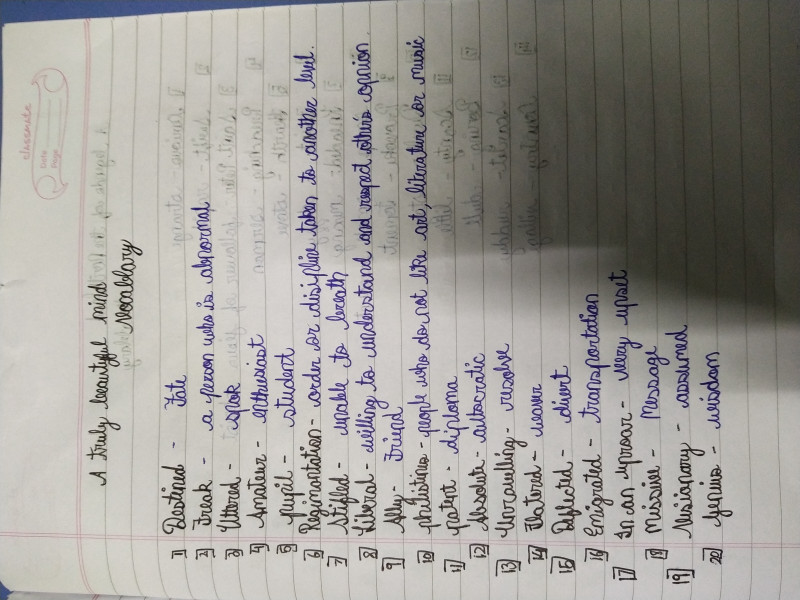 classmate
Date
Page
A truly beautiful mind
Vocablary
1) Destined - Fate
2) Freak - a person who is abnormal
3) Uttered - spok
4) Amateur - enthusiast
5) pupil - student
6) Regimantation - order or disipline taken to another level.
7) Stifled - unable to breath
8) Liberal - willing to understand and respect other's opinion.
9) Ally - Friend
10) philistines - people who do not like art, literature or music
11) patent - diploma
12) Absolute - autocratic
13) Unravelling - resolve
14) Flatered -
15) Deflected - divert
16) Emigrated - transportation
17) In an uproar - very upset
18) Missive - Message
19) Visionary - assumed
20) genius - wisdom